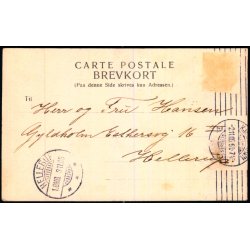 CARTE POSTALE
BREVKORT
(Paa denne Side skrives kun Adressen.)
Til
Herr og Fru Hansen
Gyldholm Esthersvej 16
Hellerup
HELLERUP